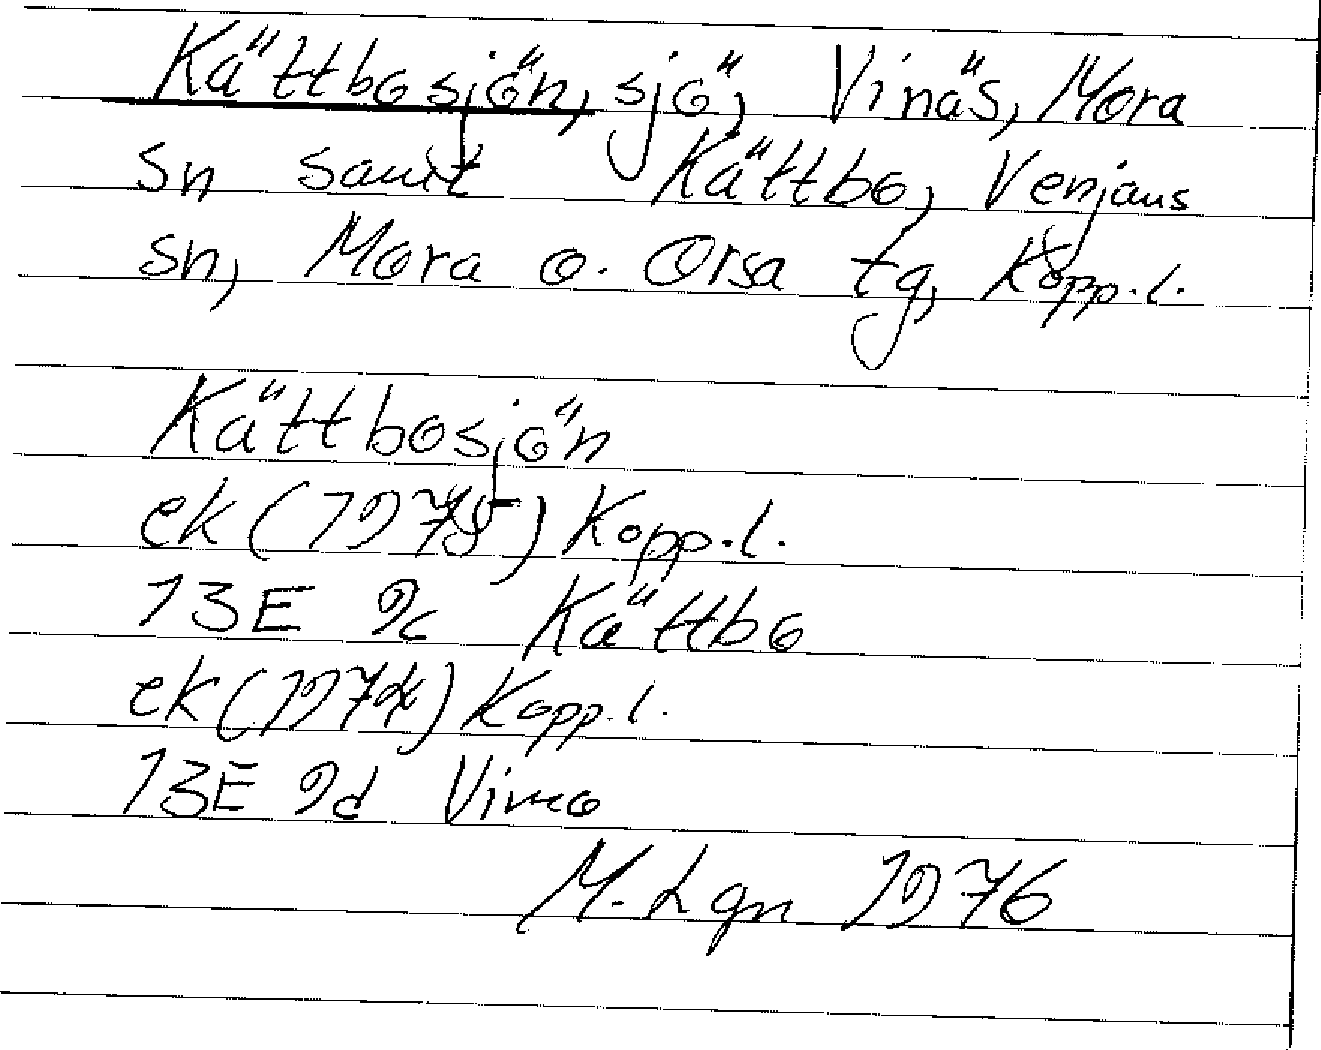 Kättbosjön, sjö, Vinäs, Mora
sn samt Kättbo, Venjans
sn, Mora o. Orsa tg, Kopp.l.
Kättbosjön
ek (1975) Kopp.l.
13E 9c Kättbo
ek (1974) Kopp.l.
13E 9d Vimo
M. Lgn 1976